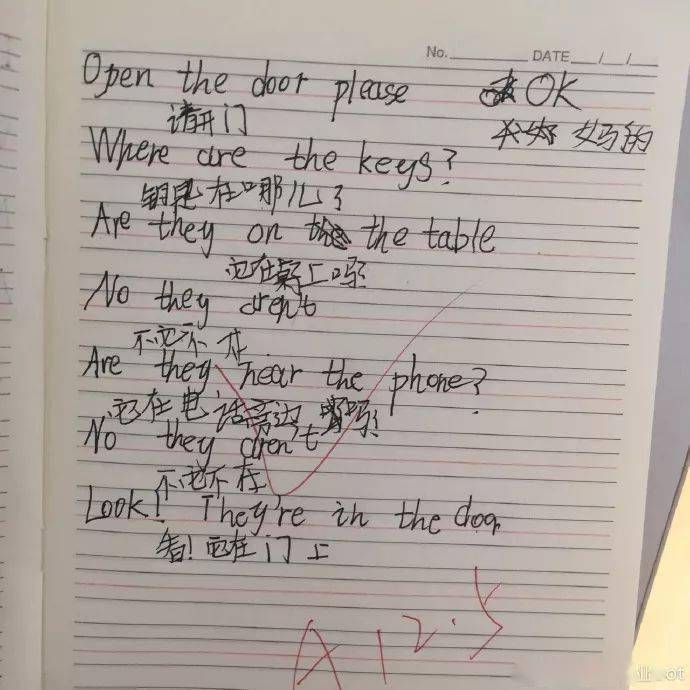 No. DATE / /
Open the door please OK
请开门 妈的
Where are the keys?
钥匙在哪儿?
Are they on the table
它在桌上吗!
No they aren't
不它不在
Are they near the phone?
它在电话旁边吗!
No they aren't
不它不在
Look! They're in the door
看!它在门上
A 12.5